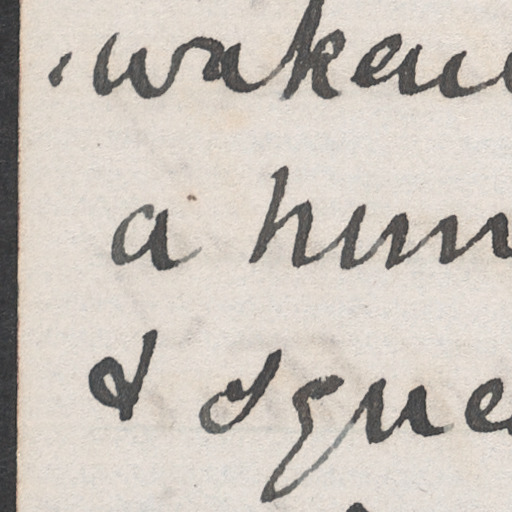 waken
a hum
& sque